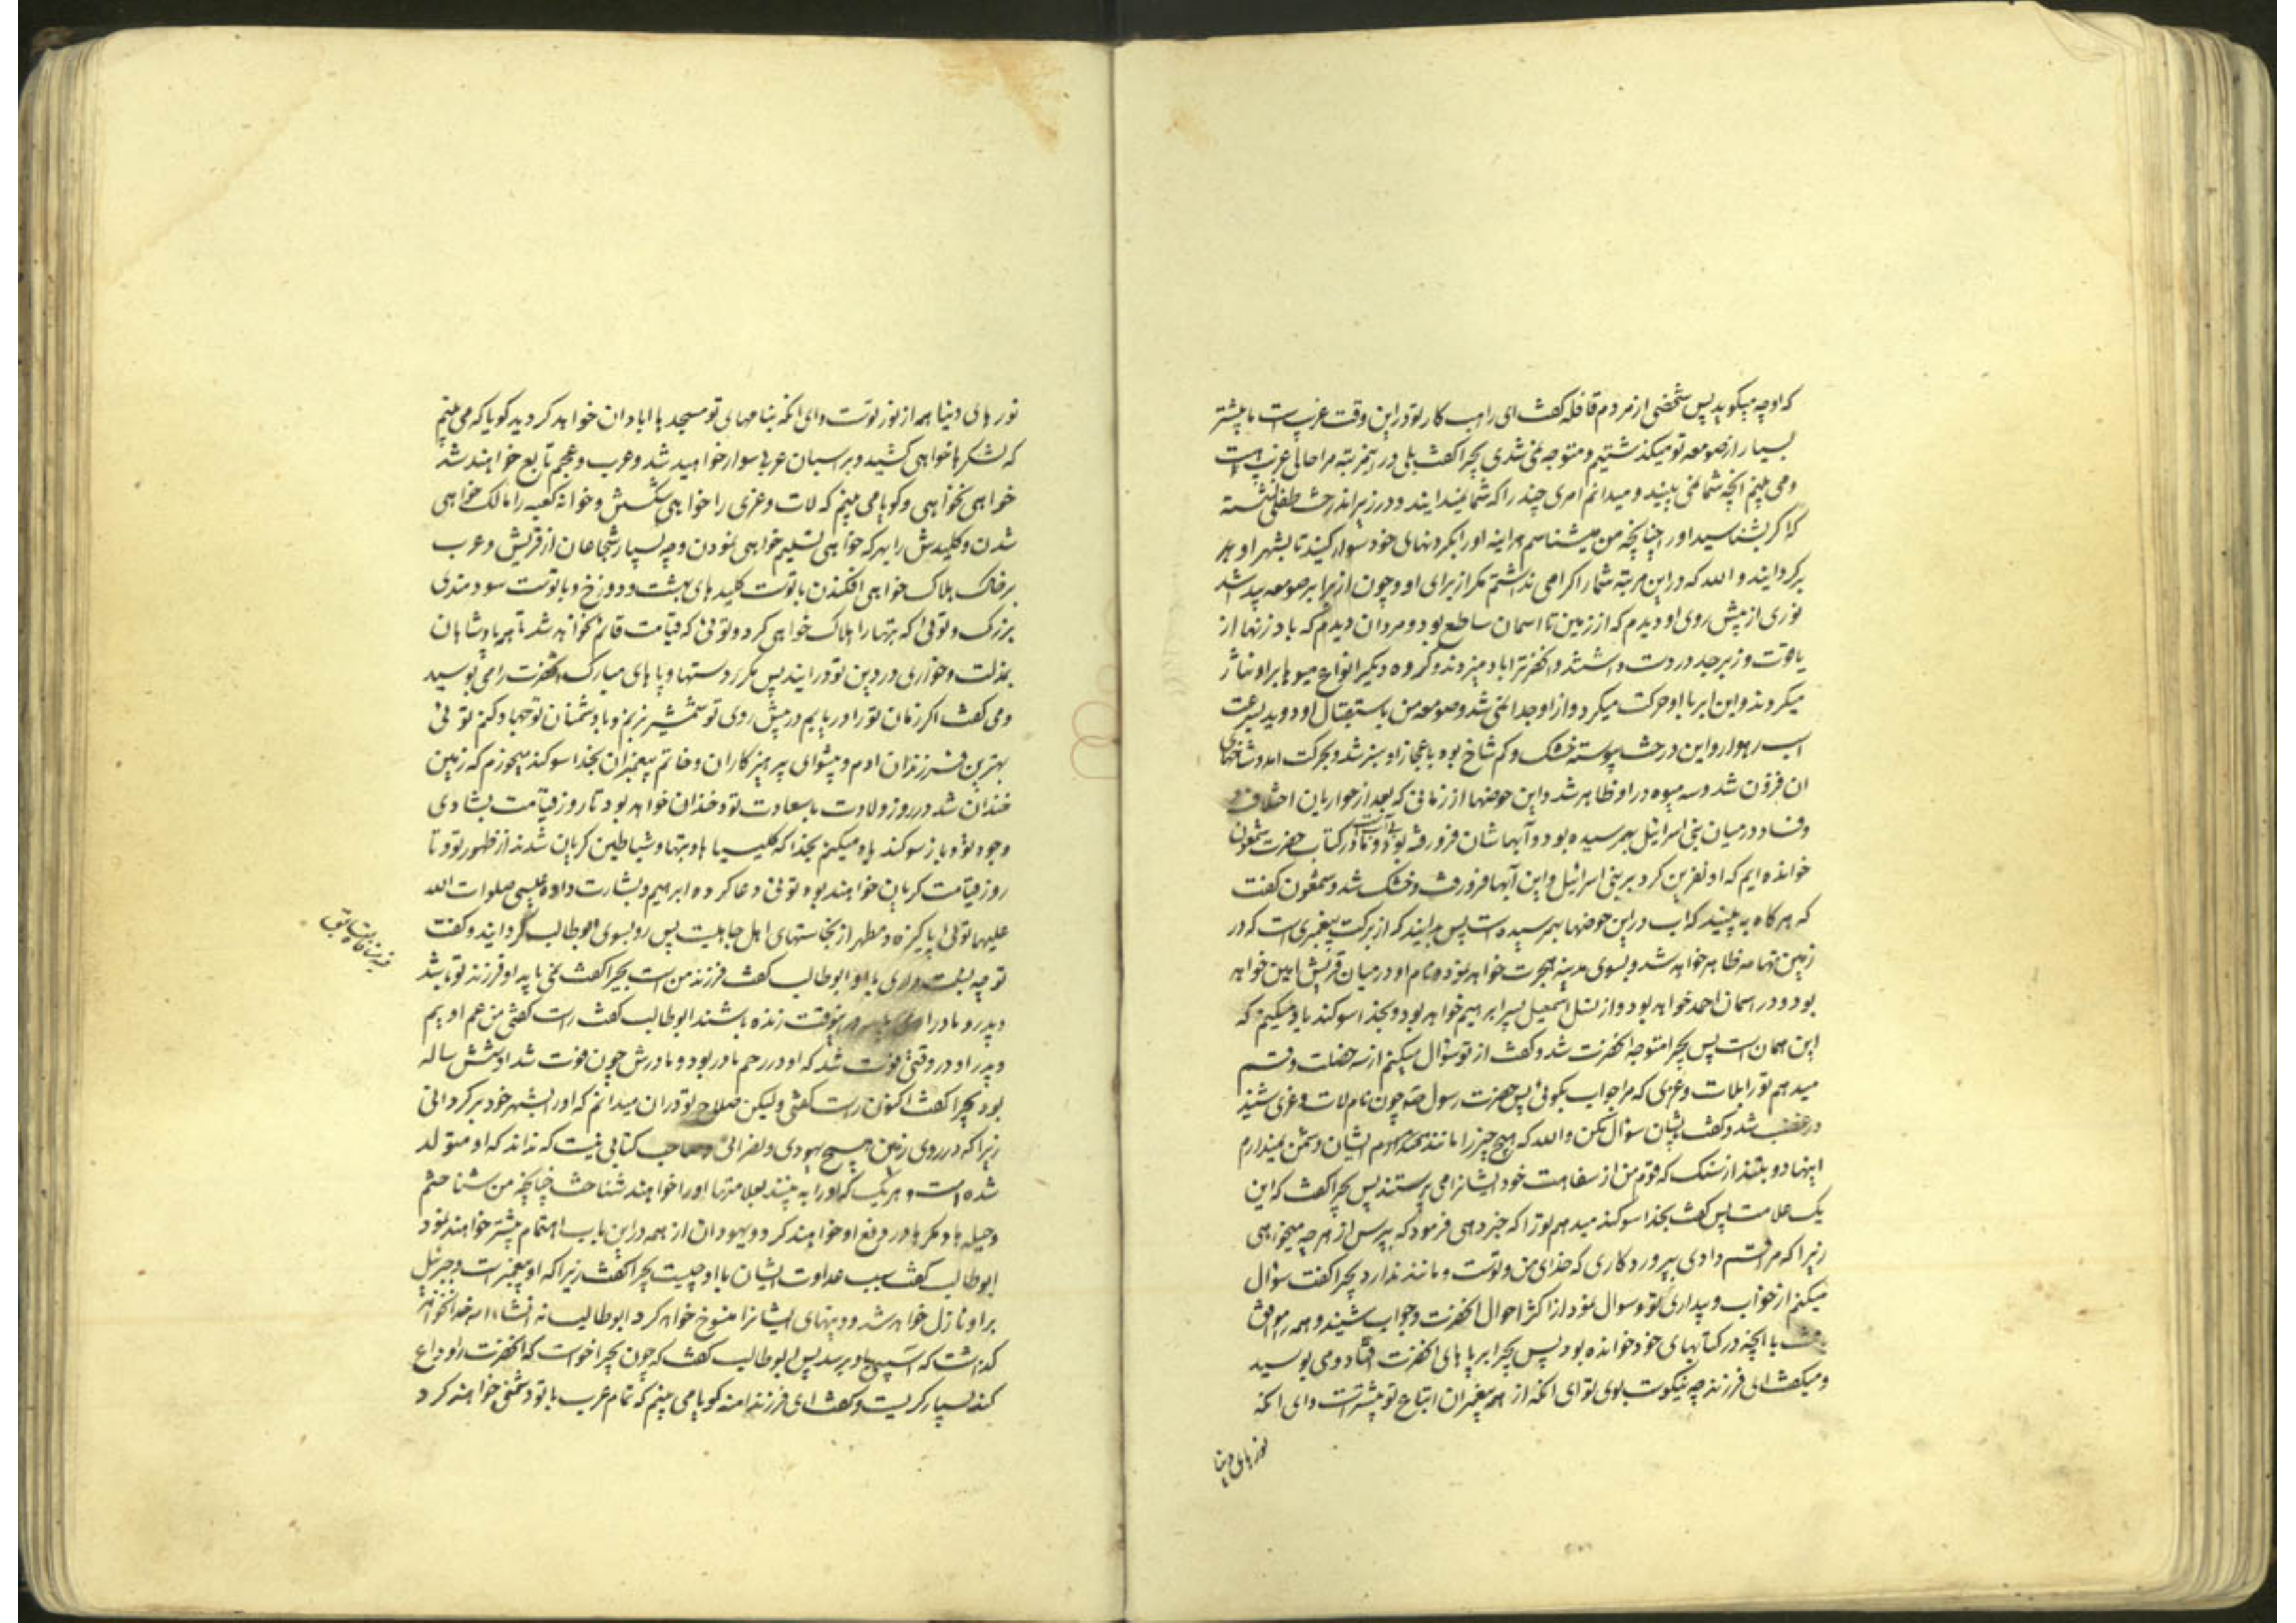 که او چه میکوید پس شخصی از مردم قافله کفت ای راهب کار تو در این وقت غریب است ما پیشتر
بسیار از صومعه تو میکذشتیم و متوجه نمی شدی بحیرا کفت بلی در اینمرتبه مرا حالی غریب است
و می بینم انچه شما نمی بینید و میدانم امری چند را که شما نمیدانید و در زیر این درخت طفلی نشسته
که اکر بشناسید او را چنانچه من میشناسم هراینه او را بکردنهای خود سوار کنید تا بشهر او
برکردانید و الله که در این مرتبه شما را اکرامی نداشتم مکر از برای او و چون از برابر صومعه پیدا شد
نوری از پیش روی او دیدم که از زمین تا اسمان ساطع بود و مردان دیدم که باد زنها از
یاقوت و زبرجد در دست داشتند و انحضرترا باد میزدند و کروه دیکر انواع میوها بر او نثار
میکردند و این ابر با او حرکت میکرد و از او جدا نمی شد و صومعه من باستقبال او دوید بسرعت
اسب رهوار و این درخت پیوسته خشک و کم شاخ بود باعجاز او سبز شد و بحرکت امد و شاخهای
ان فزون شد و سه میوه در او ظاهر شد و این حوضها از زمانی که بعد از حواریان اختلاف
و فساد در میان بنی اسرائیل بهم رسیده بود و آبهاشان فرو رفته بود و ما در کتاب حضرت شمعون
خوانده ایم که او نفرین کرد بر بنی اسرائیل و این آبها فرو رفت و خشک شد و شمعون کفت
که هر کاه به بینید که اب در این حوضها بهم رسیده است پس بدانید که از برکت پیغمبری است که در
زمین تهامه ظاهر خواهد شد و بسوی مدینه هجرت خواهد نمود و نام او در میان قریش امین خواهد
بود و در اسمان احمد خواهد بود و از نسل اسمعیل پسر ابراهیم خواهد بود و بخدا سوکند یاد میکنم که
این همان است پس بحیرا متوجه انحضرت شد و کفت از تو سؤال میکنم از سه خصلت و قسم
میدهم تو را بلات و عزی که مرا جواب بکوئی پس حضرت رسول چون نام لات و عزی شنید
در غضب شد و کفت بایشان سؤال مکن و الله که هیچ چیز را مانند ایشان دشمن نمیدارم
اینها دو بتند از سنک که قوم من از سفاهت خود ایشانرا می پرستند پس بحیرا کفت که این
یک علامت پس کفت بخدا سوکند میدهم تو را که خبر دهی فرمود که بپرس از هر چه میخواهی
زیرا که مرا قسم دادی بپروردکاری که خدای من و توست و مانند ندارد بحیرا کفت سؤال
میکنم از خواب و بیداری تو و سوال نمود از اکثر احوال انحضرت و جواب شنید و همه را موافق
یافت با انچه در کتابهای خود خوانده بود پس بحیرا بر پاهای انحضرت افتاد و می بوسید
و میکفت ای فرزند چه نیکوست بوی تو ای انکه از همه پیغمبران اتباع تو بیشتر است و ای انکه
نورهای دنیا
نورهای دنیا همه از نور توست و ای انکه بنامهای تو مسجدها ابادان خواهد کردید کویا که می بینم
که لشکرها خواهی کشید و بر اسبان عربی سوار خواهید شد و عرب و عجم تابع خواهند شد
خواهی نخواهی و کویا می بینم که لات و عزی را خواهی شکستن و خوانه کعبه را مالک خواهی
شدن و کلیدش را بهر که خواهی تسلیم خواهی نمودن و چه بسیار شجاعان از قریش و عرب
بر خاک هلاک خواهی افکندن با توست کلیدهای بهشت و دوزخ و با توست سودمندی
بزرک و توئی که بتها را هلاک خواهی کرد و توئی که قیامت قائم نخواهد شد تا همه پادشاهان
بمذلت و خواری در دین تو درایند پس مکرر دستها و پاهای مبارک انحضرت را می بوسید
و می کفت اکر زمان تو را دریابم در پیش روی تو شمشیر بزنم و با دشمنان تو جهاد کنم توئی
بهترین فرزندان ادم و پیشوای پرهیزکاران و خاتم پیغمبران بخدا سوکند میخورم که زمین
خندان شد در روز ولادت با سعادت تو و خندان خواهد بود تا روز قیامت بشادی
وجود تو و باز سوکند یاد میکنم بخدا که کلیسیاها و بتها و شیاطین کریان شدند از ظهور تو و تا
روز قیامت کریان خواهند بود توئی دعا کرده ابراهیم و بشارت داده عیسی صلوات الله
علیهما توئی پاکیزه و مطهر از نجاستهای اهل جاهلیت پس رو بسوی ابوطالب کردانید و کفت
تو چه نسبت داری با او ابوطالب کفت فرزند من است بحیرا کفت نمی باید او فرزند تو باشد
و پدر و مادر او اینوقت زنده باشند ابوطالب کفت راست کفتی من عم اویم
و پدر او در وقتی فوت شد که او در رحم مادر بود و مادرش چون فوت شد او شش ساله
بود بحیرا کفت اکنون راست کفتی ولیکن صلاح تو در ان میدانم که او را بشهر خود برکردانی
زیرا که در روی زمین هیچ یهودی و نصرانی و صاحب کتابی نیست که نداند که او متولد
شده است و هر یک که او را به بینند بعلامتها او را خواهند شناخت چنانچه من شناختم
و حیله ها و مکرها در دفع او خواهند کرد و یهودان از همه در این باب اهتمام بیشتر خواهند نمود
ابوطالب کفت سبب عداوت ایشان با او چیست بحیرا کفت زیرا که او پیغمبر است و جبرئیل
بر او نازل خواهد شد و دینهای ایشانرا منسوخ خواهد کرد ابوطالب نه انشاء الله خدا نخواهد
کذاشت که اسیبی باو برسد پس ابوطالب کفت که چون بحیرا خواست که انحضرت را وداع
کند بسیار کریست و کفت ای فرزند امنه کویا می بینم که تمام عرب با تو دشمنی خواهند کرد